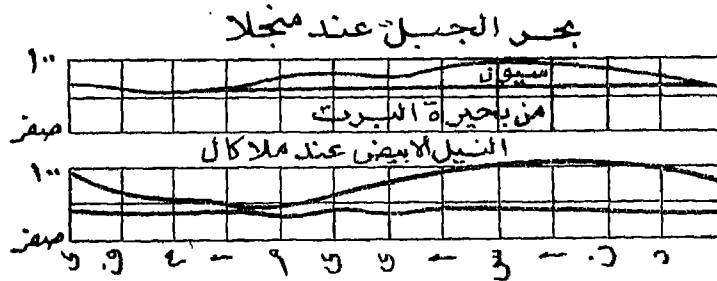 بحر الجبل عند منجلا
١٠٠
سيول
من بحيرة البرت
صفر
النيل الابيض عند ملاكال
١٠٠
صفر
ى ف م ا م ى ى ا س ا ن د